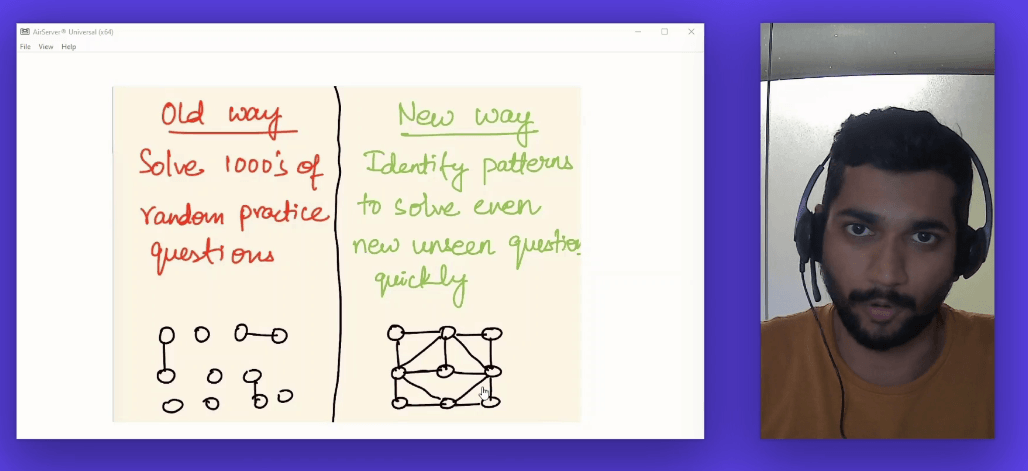 AirServer® Universal (x64)
File View Help
Old way
Solve 1000's of
random practice
questions
New way
Identify patterns
to solve even
new unseen question
quickly